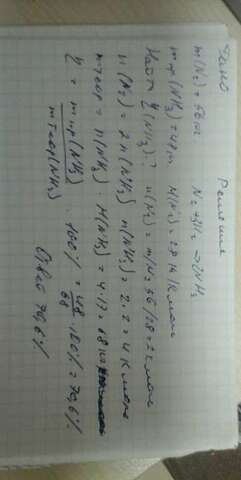 Дано Решение
m(N₂) = 56 т N₂ + 3H₂ → 2NH₃
mпр(NH₃) = 48 т M(N₂) = 28 кг/кмоль
Найти η(NH₃)? n(N₂) = m/M = 56/28 = 2 кмоль
n(N₂) = 2n(NH₃) n(NH₃) = 2·2 = 4 кмоль
mтеор = n(NH₃)·M(NH₃) = 4·17 = 68 кг
η = mпр(NH₃) / mтеор(NH₃) · 100% = 48/68 · 100% = 70,6%
Ответ 70,6%